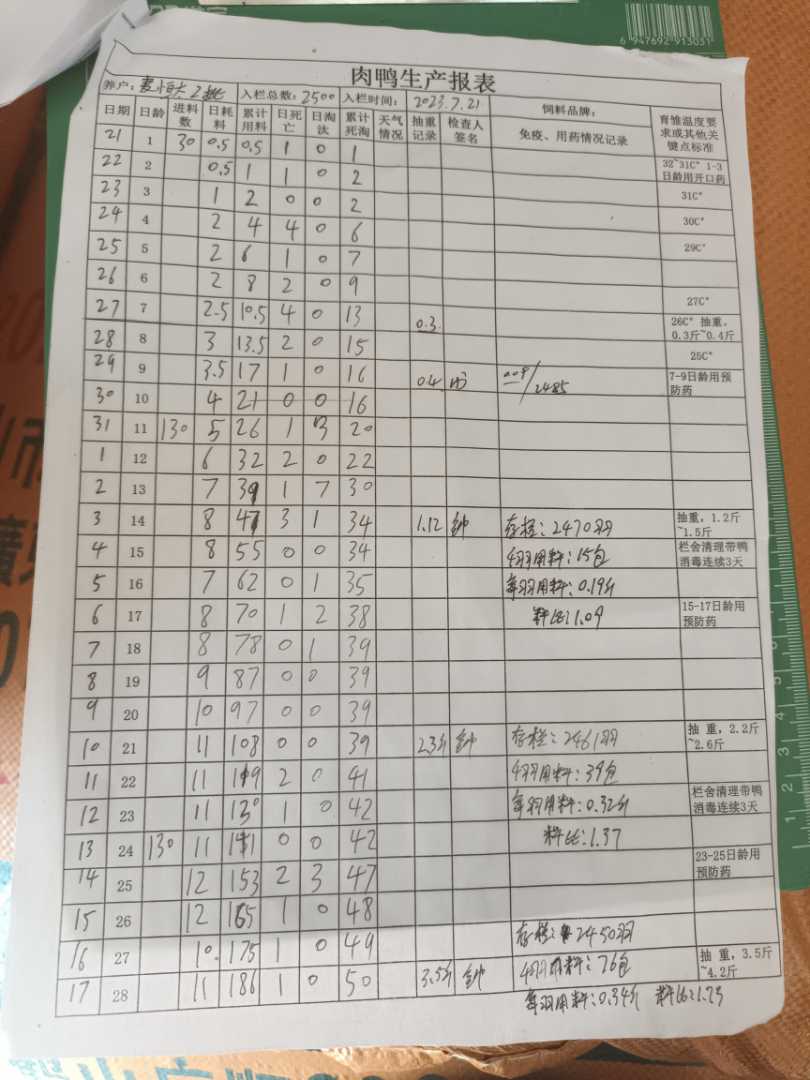 6 947692 913051
肉鸭生产报表
养户： 入栏总数：2500 入栏时间：2023.7.21 饲料品牌：
日期 日龄 进料数 日耗料 累计用料 日死亡 日淘汰 累计死淘 天气情况 抽重记录 检查人签名 免疫、用药情况记录 育雏温度要求或其他关键点标准
21 1 30 0.5 0.5 1 0 1
22 2 0.5 1 1 0 2 32~31C° 1-3日龄用开口药
23 3 1 2 0 0 2 31C°
24 4 2 4 4 0 6 30C°
25 5 2 6 1 0 7 29C°
26 6 2 8 2 0 9
27 7 2.5 10.5 4 0 13 0.3 27C°
26C° 抽重，0.3斤~0.4斤
28 8 3 13.5 2 0 15 25C°
29 9 3.5 17 1 0 16 0.4 2485 7-9日龄用预防药
30 10 4 21 0 0 16
31 11 130 5 26 1 3 20
1 12 6 32 2 0 22
2 13 7 39 1 7 30
3 14 8 47 3 1 34 1.12 钟 存栏：2470羽 抽重，1.2斤~1.5斤
4 15 8 55 0 0 34 4羽用料：15包 栏舍清理带鸭消毒连续3天
5 16 7 62 0 1 35 每羽用料：0.19斤
6 17 8 70 1 2 38 料比：1.09 15-17日龄用预防药
7 18 8 78 0 1 39
8 19 9 87 0 0 39
9 20 10 97 0 0 39
10 21 11 108 0 0 39 2.3斤 钟 存栏：2461羽 抽 重，2.2斤~2.6斤
11 22 11 119 2 0 41 4羽用料：39包
12 23 11 130 1 0 42 每羽用料：0.32斤 栏舍清理带鸭消毒连续3天
13 24 130 11 141 0 0 42 料比：1.37
14 25 12 153 2 3 47 23-25日龄用预防药
15 26 12 165 1 0 48
16 27 10 175 1 0 49 存栏：2450羽
17 28 11 186 1 0 50 3.5斤 钟 4羽用料：76包 抽 重，3.5斤~4.2斤
每羽用料：0.34斤 料比：1.73